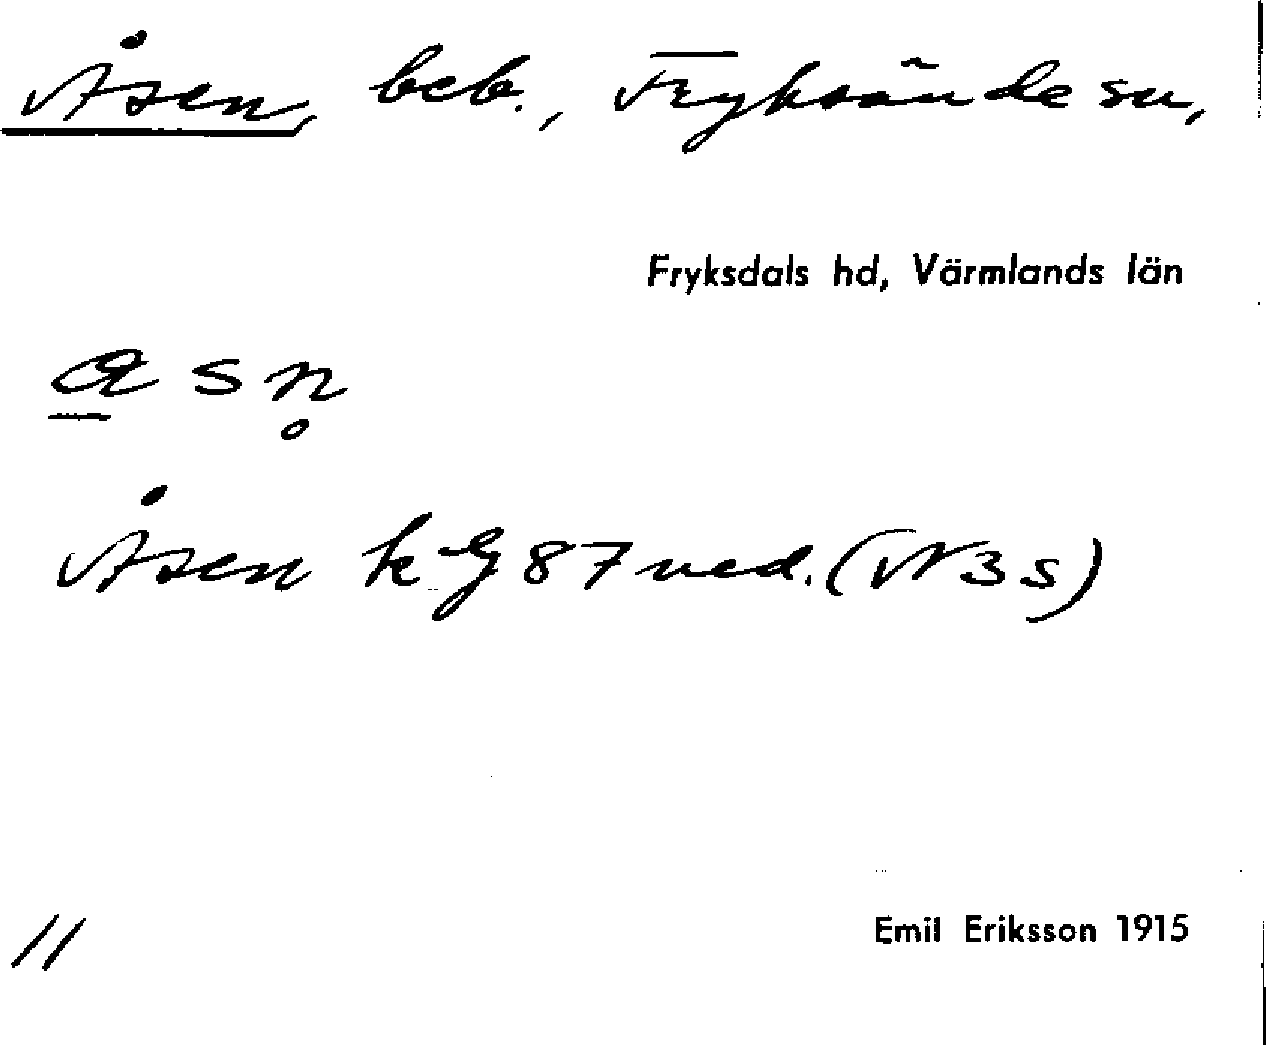 Åsen, beb., Fryksände sn,
Fryksdals hd, Värmlands län
a̲ s n̥
Åsen k G 87 ned. (N 3 s)
11
Emil Eriksson 1915